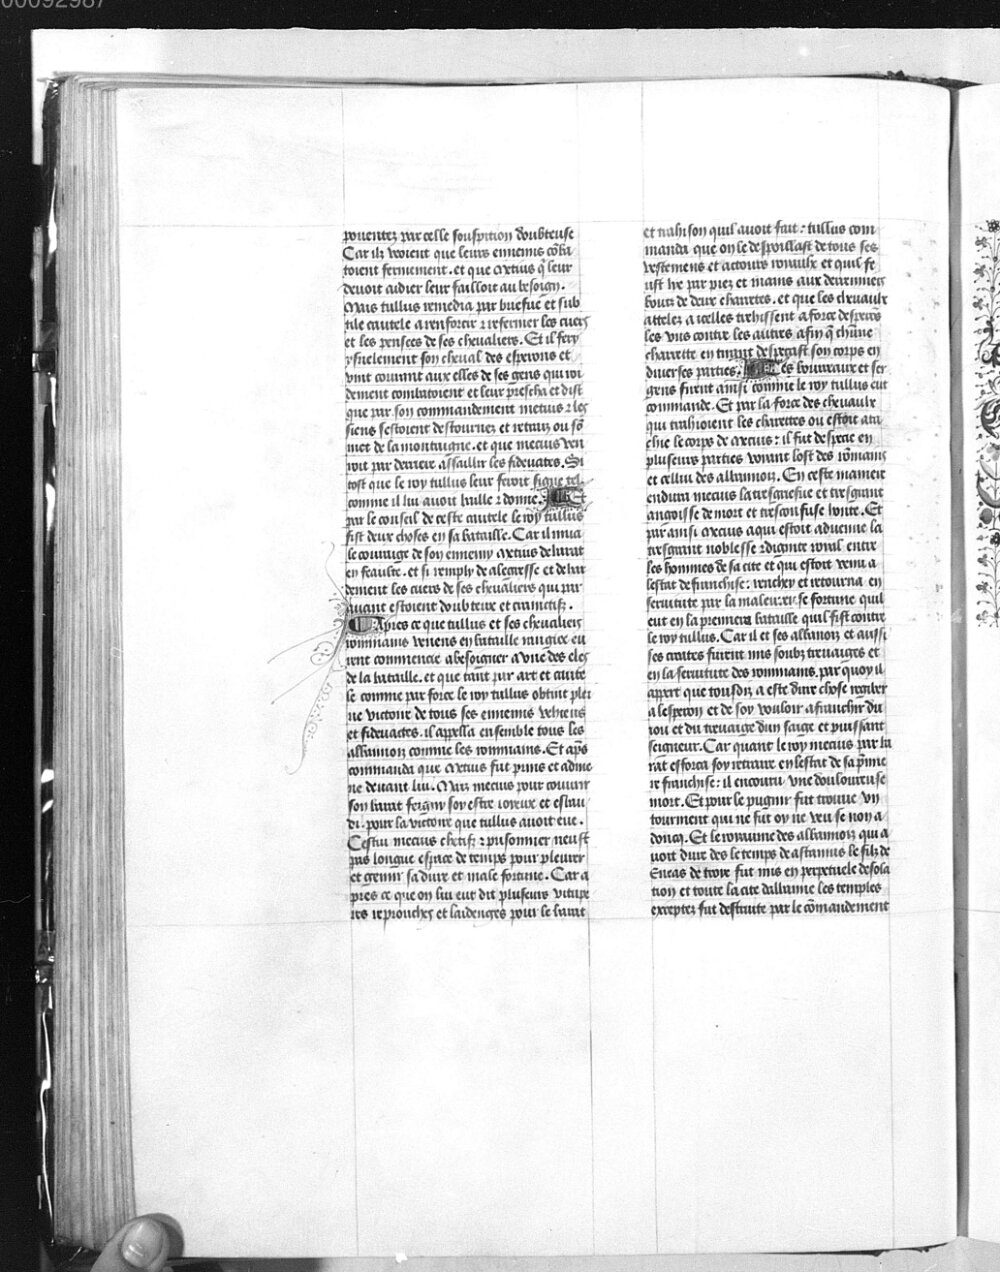 00092987
pouentez par celle souspition doubteuse
Car ilz veoient que leurs ennemis cōba
toient fermement. et que metius q̄ leur
devoit aidier leur failloit au besoign.
Mais tullus remedia par briefue et sub
tile cautele a renforcer ⁊ refermer les cuers
et les pensees de ses chevaliers. Et il fery
ysnelement son cheval des esperons et
vint courant aux elles de ses gens qui roi
dement combatoient et leur prescha et dist
que par son commandement metius ⁊ les
siens sestoient destournez et retraiz ou sō
met de la montaigne. et que mecius ven
roit par derriere assaillir les fidenates. Si
tost que le roy tullus leur feroit signe tel
comme il lui avoit baille ⁊ donne. Et
par le conseil de ceste cautele le roy tullus
fist deux choses en sa bataille. Car il mua
le courage de son ennemy metius de barat
en feaulte. et si remply de alegresse et de har
dement les cuers de ses chevaliers qui par
avant estoient doubteux et craintifz.
Apres ce que tullus et ses chevaliers
rommains venens en bataille rangiee eu
rent commencie a besoigner a une des eles
de la bataille. et que tant par art et caute
le comme par force le roy tullus obtint plei
ne victoire de tous ses ennemis vehiens
et fidenactes. il appella ensemble tous les
albanoiz comme les rommains. Et aps̄
commanda que metius fut prins et adme
ne devant lui. Mais mecius pour couurir
son barat feigny soy estre ioyeux et esbau
di. pour la victoire que tullus avoit eue.
Cestui mecius chetif ⁊ prisonnier neust
pas longue espace de temps pour pleurer
et cremir sa dure et male fortune. Car a
pres ce que on lui eut dit plusieurs vitupe
res reprouches et laidenges pour le barat
et trahison quil avoit fait : tullus com
manda que on le despoillast de tous ses
vestemens et actours royaulx et quil fe
ust lie par piez et mains aux derreniers
boutz de deux charettes. et que les chevaulx
attelez a icelles trahissent a force desperōs
les vns contre les autres afin q̄ chūne
charrette en tirant despecast son corps en
diverses parties. Les bourreaux et ser
gens firent ainsi comme le roy tullus eut
commande. Et par la force des chevaulx
qui trahioient les charettes ou estoit ata
chie le corps de mecius : il fut despecie en
plusieurs parties voiant lost des rōmains
et cellui des albannoiz. En ceste maniere
endura mecius la tresgriefue et tresgrant
angoisse de mort et tresconfuse honte. Et
par ainsi mecius a qui estoit advenue la
tresgrant noblesse ⁊ dignite royal entre
les hommes de sa cite et qui estoit venu a
lestat de franchise : renchey et retourna en
servitute par la maleureuse fortune quil
eut en la premiere bataille quil fist contre
le roy tullus. Car il et ses albanoiz et aussi
ses citates furent mis soubz treuaiges et
en la servitute des rommains. par quoy il
appert que tousdiz a este dure chose regiber
a lesperon et de soy vouloir afranchir du
iou et du treuaige dun saige et puissant
seigneur. Car quant le roy mecius par ba
rat efforca soy retraire en lestat de sa p̄mie
re franchise : il encouru une douloureuse
mort. Et pour le pugnir fut trouve vn
tourment qui ne fut oy ne veu se non a
doncq. Et le royaume des albannoiz qui a
voit dure des le temps de astanius le filz de
Eneas de troye fut mis en perpetuele desola
tion et toute la cite dalbanne les temples
exceptez fut destruite par le cōmandement